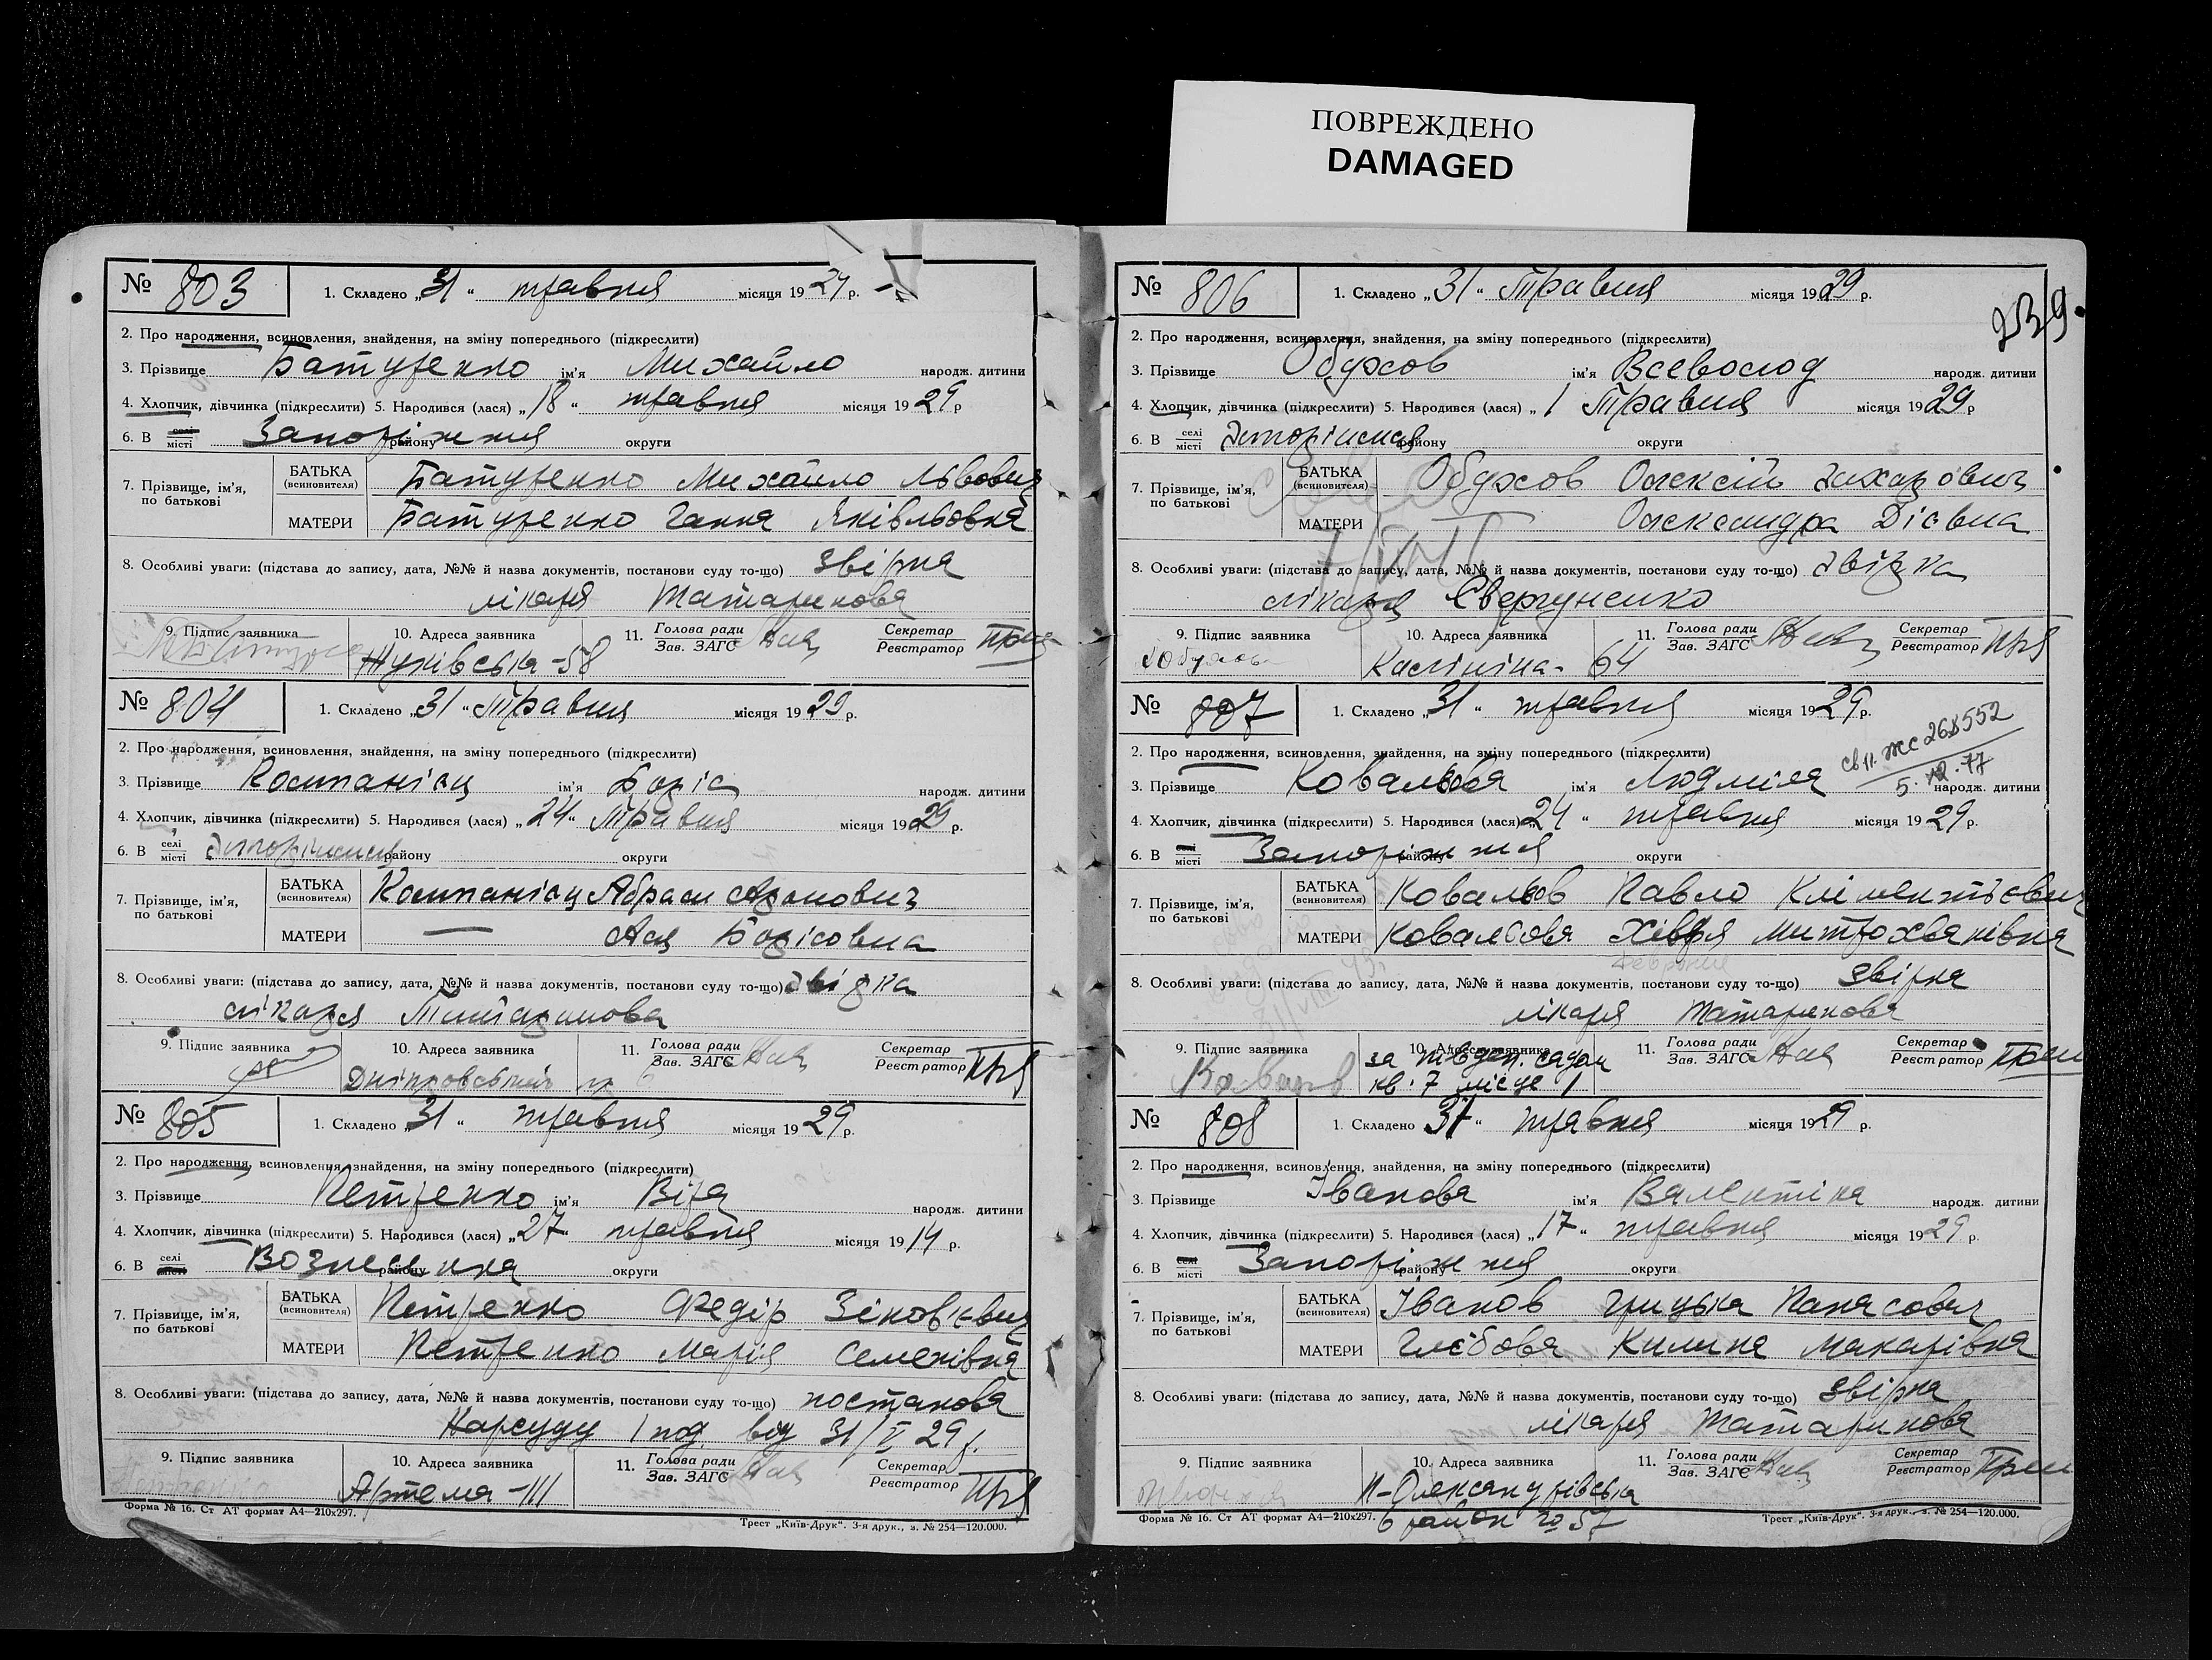 ПОВРЕЖДЕНО
DAMAGED
№ 803 1. Складено „31“ травня місяця 1929 р.
2. Про народження, всиновлення, знайдення, на зміну попереднього (підкреслити)
3. Прізвище Батуренко ім'я Михайло народж. дитини
4. Хлопчик, дівчинка (підкреслити) 5. Народився (лася) „18“ травня місяця 1929 р
6. В селі місті Запоріжжя району округи
7. Прізвище, ім'я, по батькові БАТЬКА (всиновителя) Батуренко Михайло Львович
МАТЕРИ Батуренко Ганна Яківльовна
8. Особливі уваги: (підстава до запису, дата, №№ й назва документів, постанови суду то-що) звірка
лікаря Татаринова
9. Підпис заявника 10. Адреса заявника 11. Голова ради Зав. ЗАГС Секретар Реєстратор
Жуківська-58
№ 804 1. Складено „31“ Травня місяця 1929 р.
2. Про народження, всиновлення, знайдення, на зміну попереднього (підкреслити)
3. Прізвище Компанієц ім'я Боріс народж. дитини
4. Хлопчик, дівчинка (підкреслити) 5. Народився (лася) „24“ Травня місяця 1929 р.
6. В селі місті Запоріжжя району округи
7. Прізвище, ім'я, по батькові БАТЬКА (всиновителя) Компанієц Абрам Аронович
МАТЕРИ — Ася Борісовна
8. Особливі уваги: (підстава до запису, дата, №№ й назва документів, постанови суду то-що) звірка
лікаря Татаринова
9. Підпис заявника 10. Адреса заявника 11. Голова ради Зав. ЗАГС Секретар Реєстратор
Дніпровський 6
№ 805 1. Складено „31“ травня місяця 1929 р.
2. Про народження, всиновлення, знайдення, на зміну попереднього (підкреслити)
3. Прізвище Петренко ім'я Віра народж. дитини
4. Хлопчик, дівчинка (підкреслити) 5. Народився (лася) „27 травня місяця 1914 р.
6. В селі місті Вознесенка району округи
7. Прізвище, ім'я, по батькові БАТЬКА (всиновителя) Петренко Федір Зіновієвич
МАТЕРИ Петренко Марія Семенівна
8. Особливі уваги: (підстава до запису, дата, №№ й назва документів, постанови суду то-що) постанова
Нарсуду 1 под від 31/V 29 р.
9. Підпис заявника 10. Адреса заявника 11. Голова ради Зав. ЗАГС Секретар Реєстратор
Артема-111
Форма № 16. Ст АТ формат А4—210х297. Трест „Київ-Друк“. 3-я друк., з. № 254—120.000.
239
№ 806 1. Складено „31“ Травня місяця 1929 р.
2. Про народження, всиновлення, знайдення, на зміну попереднього (підкреслити)
3. Прізвище Обухов ім'я Всеволод народж. дитини
4. Хлопчик, дівчинка (підкреслити) 5. Народився (лася) „1 Травня місяця 1929 р
6. В селі місті Запоріжжя району округи
7. Прізвище, ім'я, по батькові БАТЬКА (всиновителя) Обухов Олексій Захарович
МАТЕРИ — Олександра Дієвна
8. Особливі уваги: (підстава до запису, дата, №№ й назва документів, постанови суду то-що) звірка
лікаря Євергуненко
9. Підпис заявника 10. Адреса заявника 11. Голова ради Зав. ЗАГС Секретар Реєстратор
Калініна-64
№ 807 1. Складено „31“ травня місяця 1929 р.
2. Про народження, всиновлення, знайдення, на зміну попереднього (підкреслити)
св п. ЖС 268552
5.12.77
3. Прізвище Ковальова ім'я Людміла народж. дитини
4. Хлопчик, дівчинка (підкреслити) 5. Народився (лася) „24“ травня місяця 1929 р.
6. В селі місті Запоріжжя району округи
7. Прізвище, ім'я, по батькові БАТЬКА (всиновителя) Ковальов Павло Кліментієвич
МАТЕРИ Ковальова Хівря Митрохванівна
8. Особливі уваги: (підстава до запису, дата, №№ й назва документів, постанови суду то-що) звірка
лікаря Татаринова
9. Підпис заявника 10. Адреса заявника 11. Голова ради Зав. ЗАГС Секретар Реєстратор
за півден. садом
кв. 7 місце 1
№ 808 1. Складено „31“ травня місяця 1929 р.
2. Про народження, всиновлення, знайдення, на зміну попереднього (підкреслити)
3. Прізвище Іванова ім'я Валентіна народж. дитини
4. Хлопчик, дівчинка (підкреслити) 5. Народився (лася) „17“ травня місяця 1929 р.
6. В селі місті Запоріжжя району округи
7. Прізвище, ім'я, по батькові БАТЬКА (всиновителя) Іванов Грицька Панасович
МАТЕРИ Глєбова Килина Макарівна
8. Особливі уваги: (підстава до запису, дата, №№ й назва документів, постанови суду то-що) звірка
лікаря Татаринова
9. Підпис заявника 10. Адреса заявника 11. Голова ради Зав. ЗАГС Секретар Реєстратор
Н-Олександрівська
6 район № 57
Форма № 16. Ст АТ формат А4—210х297. Трест „Київ-Друк“. 3-я друк., з. № 254—120.000.